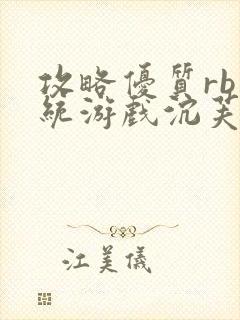 攻略優質rb
統游戲沉芙
江美儀